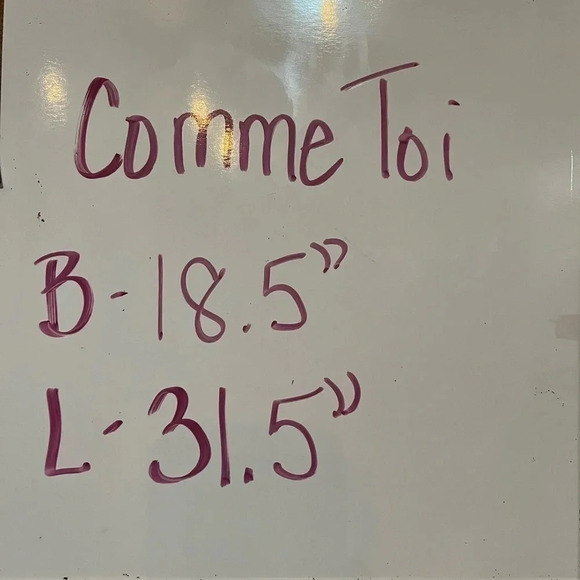 Comme Toi
B-18.5"
L-31.5"